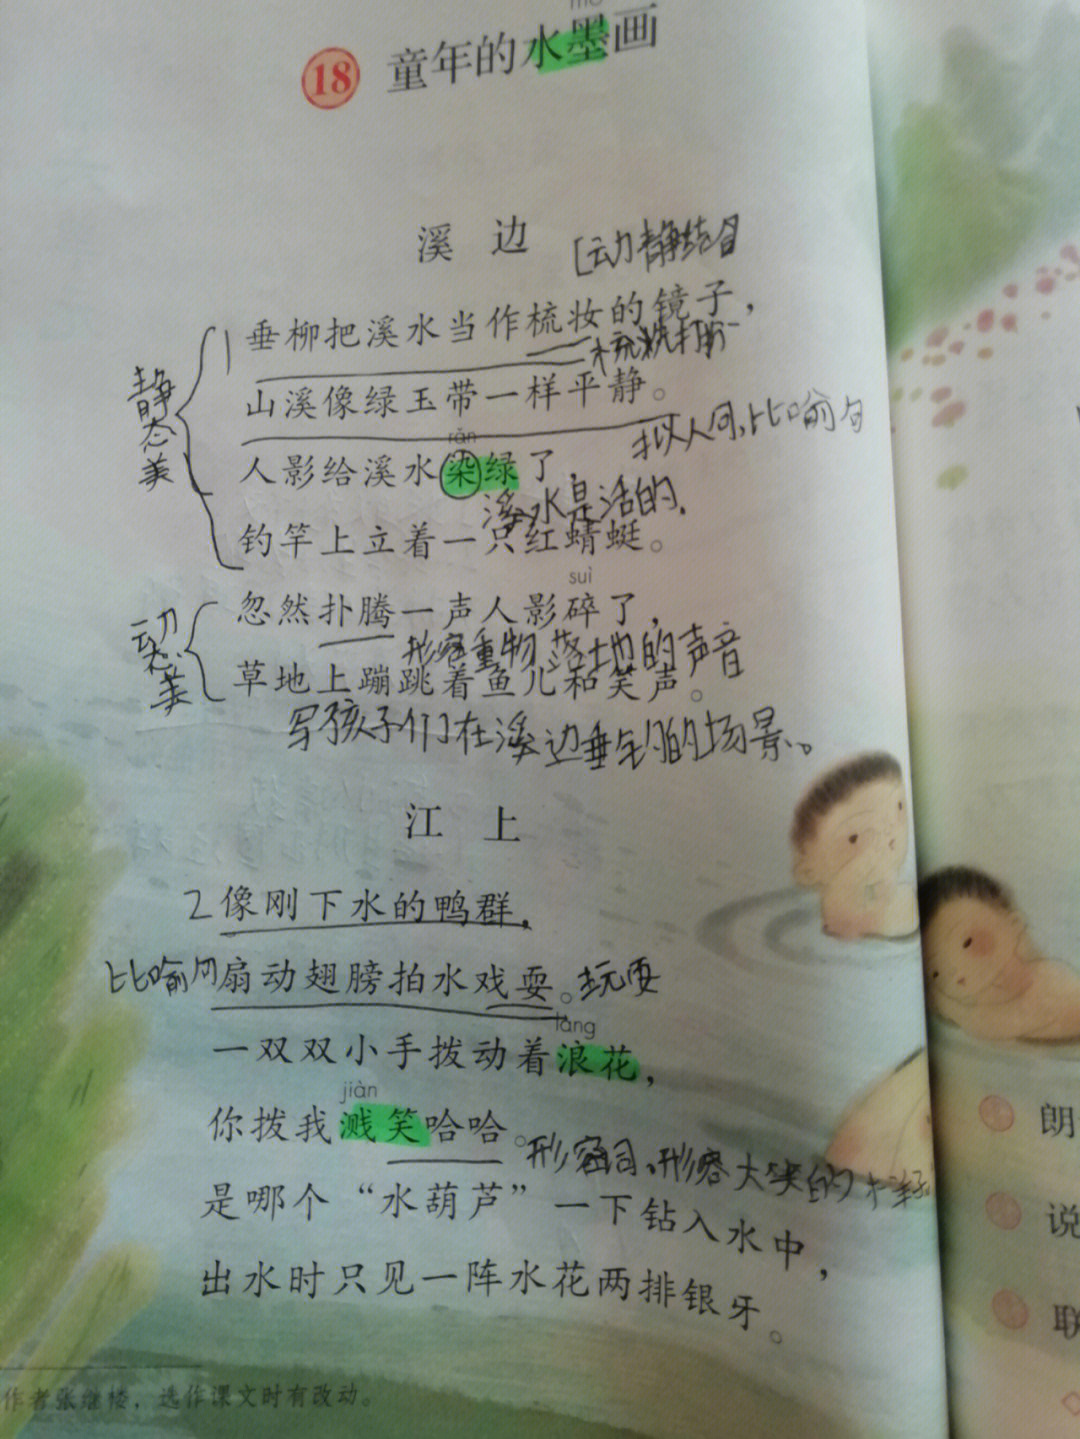 mò
18 童年的水墨画
溪 边
[动静结合
垂柳把溪水当作梳妆的镜子，
梳洗打扮
静态美
山溪像绿玉带一样平静。
拟人句,比喻句
rǎn
人影给溪水染绿了，
溪水是活的.
钓竿上立着一只红蜻蜓。
suì
忽然扑腾一声人影碎了，
形容重物落地的声音
动态美
草地上蹦跳着鱼儿和笑声。
写孩子们在溪边垂钓的场景。
江 上
2 像刚下水的鸭群，
比喻句 扇动翅膀拍水戏耍。玩耍
làng
一双双小手拨动着浪花，
jiàn
你拨我溅笑哈哈。
形容词,形容大笑的样子
是哪个“水葫芦”一下钻入水中，
出水时只见一阵水花两排银牙。
作者张继楼，选作课文时有改动。
朗
说
联